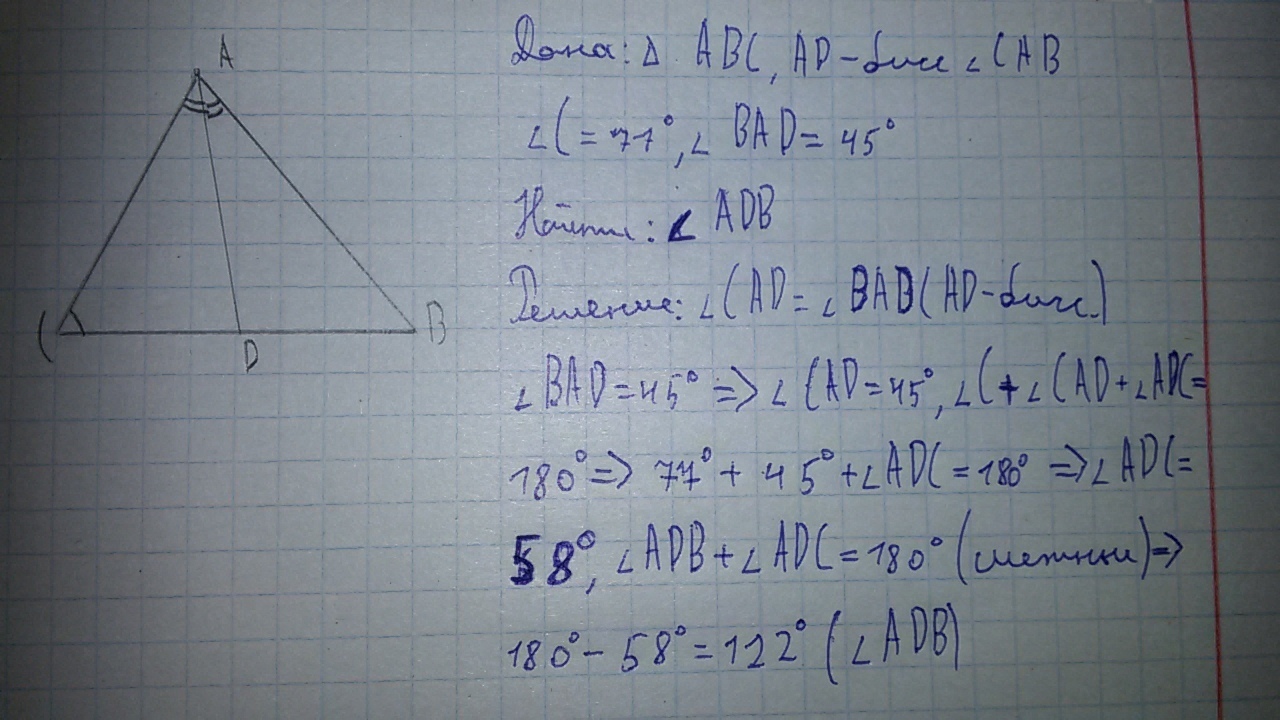 A
C
D
B
Дона: Δ ABC, AD-бисс ∠CAB
∠C = 77°, ∠BAD = 45°
Найти: ∠ ADB
Решение: ∠CAD = ∠BAD (AD-бисс.)
∠BAD = 45° => ∠CAD = 45°, ∠C + ∠CAD + ∠ADC =
180° => 77° + 45° + ∠ADC = 180° => ∠ADC =
58°, ∠ADB + ∠ADC = 180° (смежные) =>
180° - 58° = 122° (∠ADB)